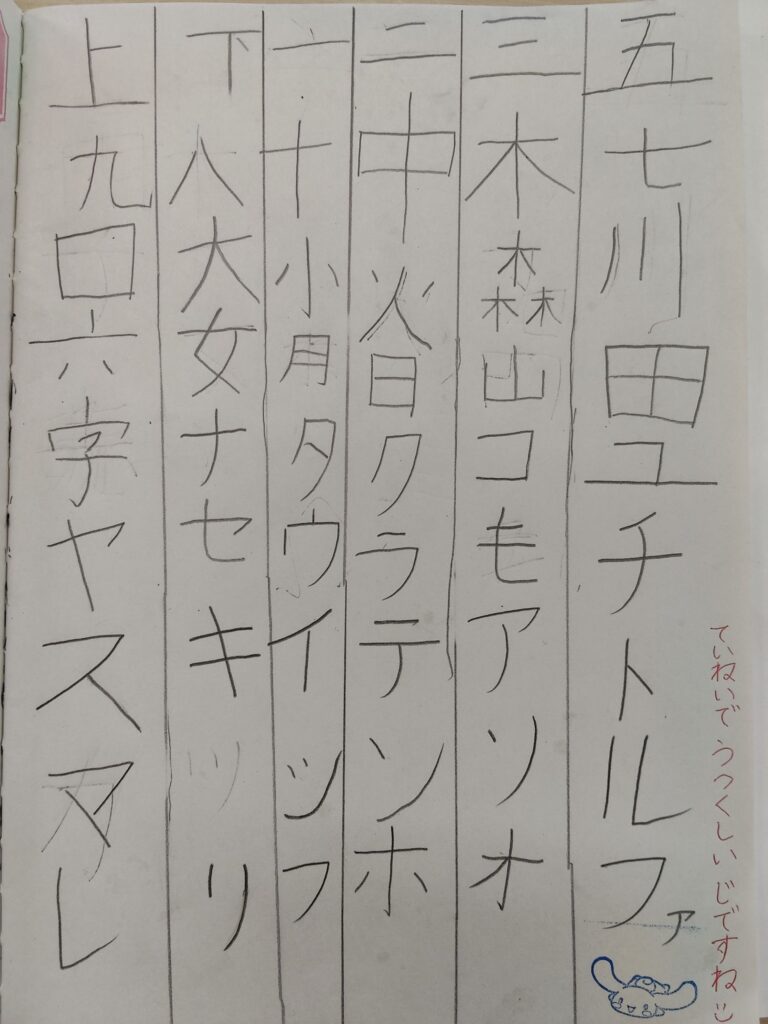 ていねいで うつくしい じですね:)
五七川田ユチトルファ
三木森山コモアソオ
二中火日クラテンホ
一十小月タウイツフ
下人大女ナセキツリ
上九口六字ヤスマレ